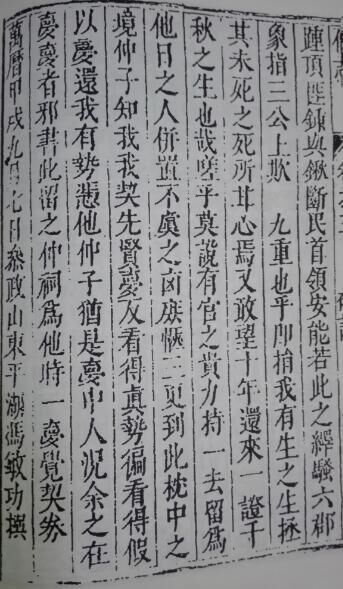 踵頂匪鍊與鍬斷民首領安能若此之繹騷六郡
象指三公上欺　九重也乎即捐我有生之生拯
其未死之死所甘心焉又敢望十年還來一證千
秋之生也哉嗟乎莫說有官之貴力持一去留爲
他日之人併置不虞之卤族愜三更到此枕中之
境仲子知我我契先賢夢友看得眞勢偏看得假
以慶還我有勢懣他仲子猶是夢中人況余之在
夢夢者邪書此留之仲祠爲他時一夢覺契券
萬曆甲戌九月七日叅政山東平湖馮敏功撰